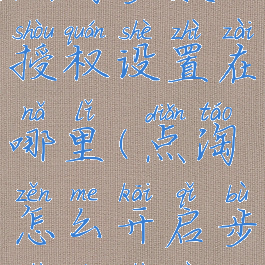 shòu quán shè zhì zài
授权设置在
nǎ lǐ diǎn táo
哪里(点淘
zěn me kāi qǐ bù
怎么开启步